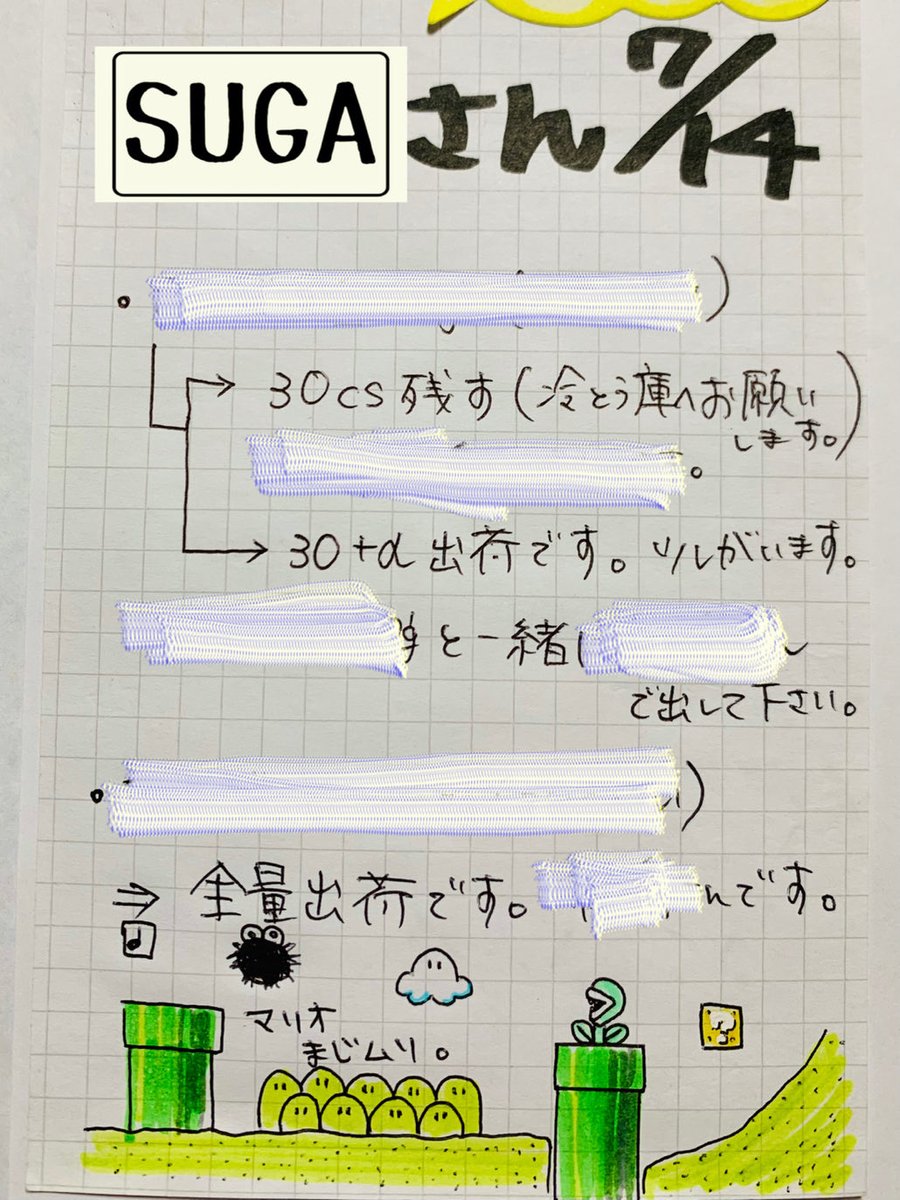 SUGAさん 7/14
30cs 残す(冷とう庫へお願い
します。)
30+α 出荷です。ツルがいます。
と一緒
で出して下さい。
⇒ 全量出荷です。 んです。
マリオ
まじムリ。